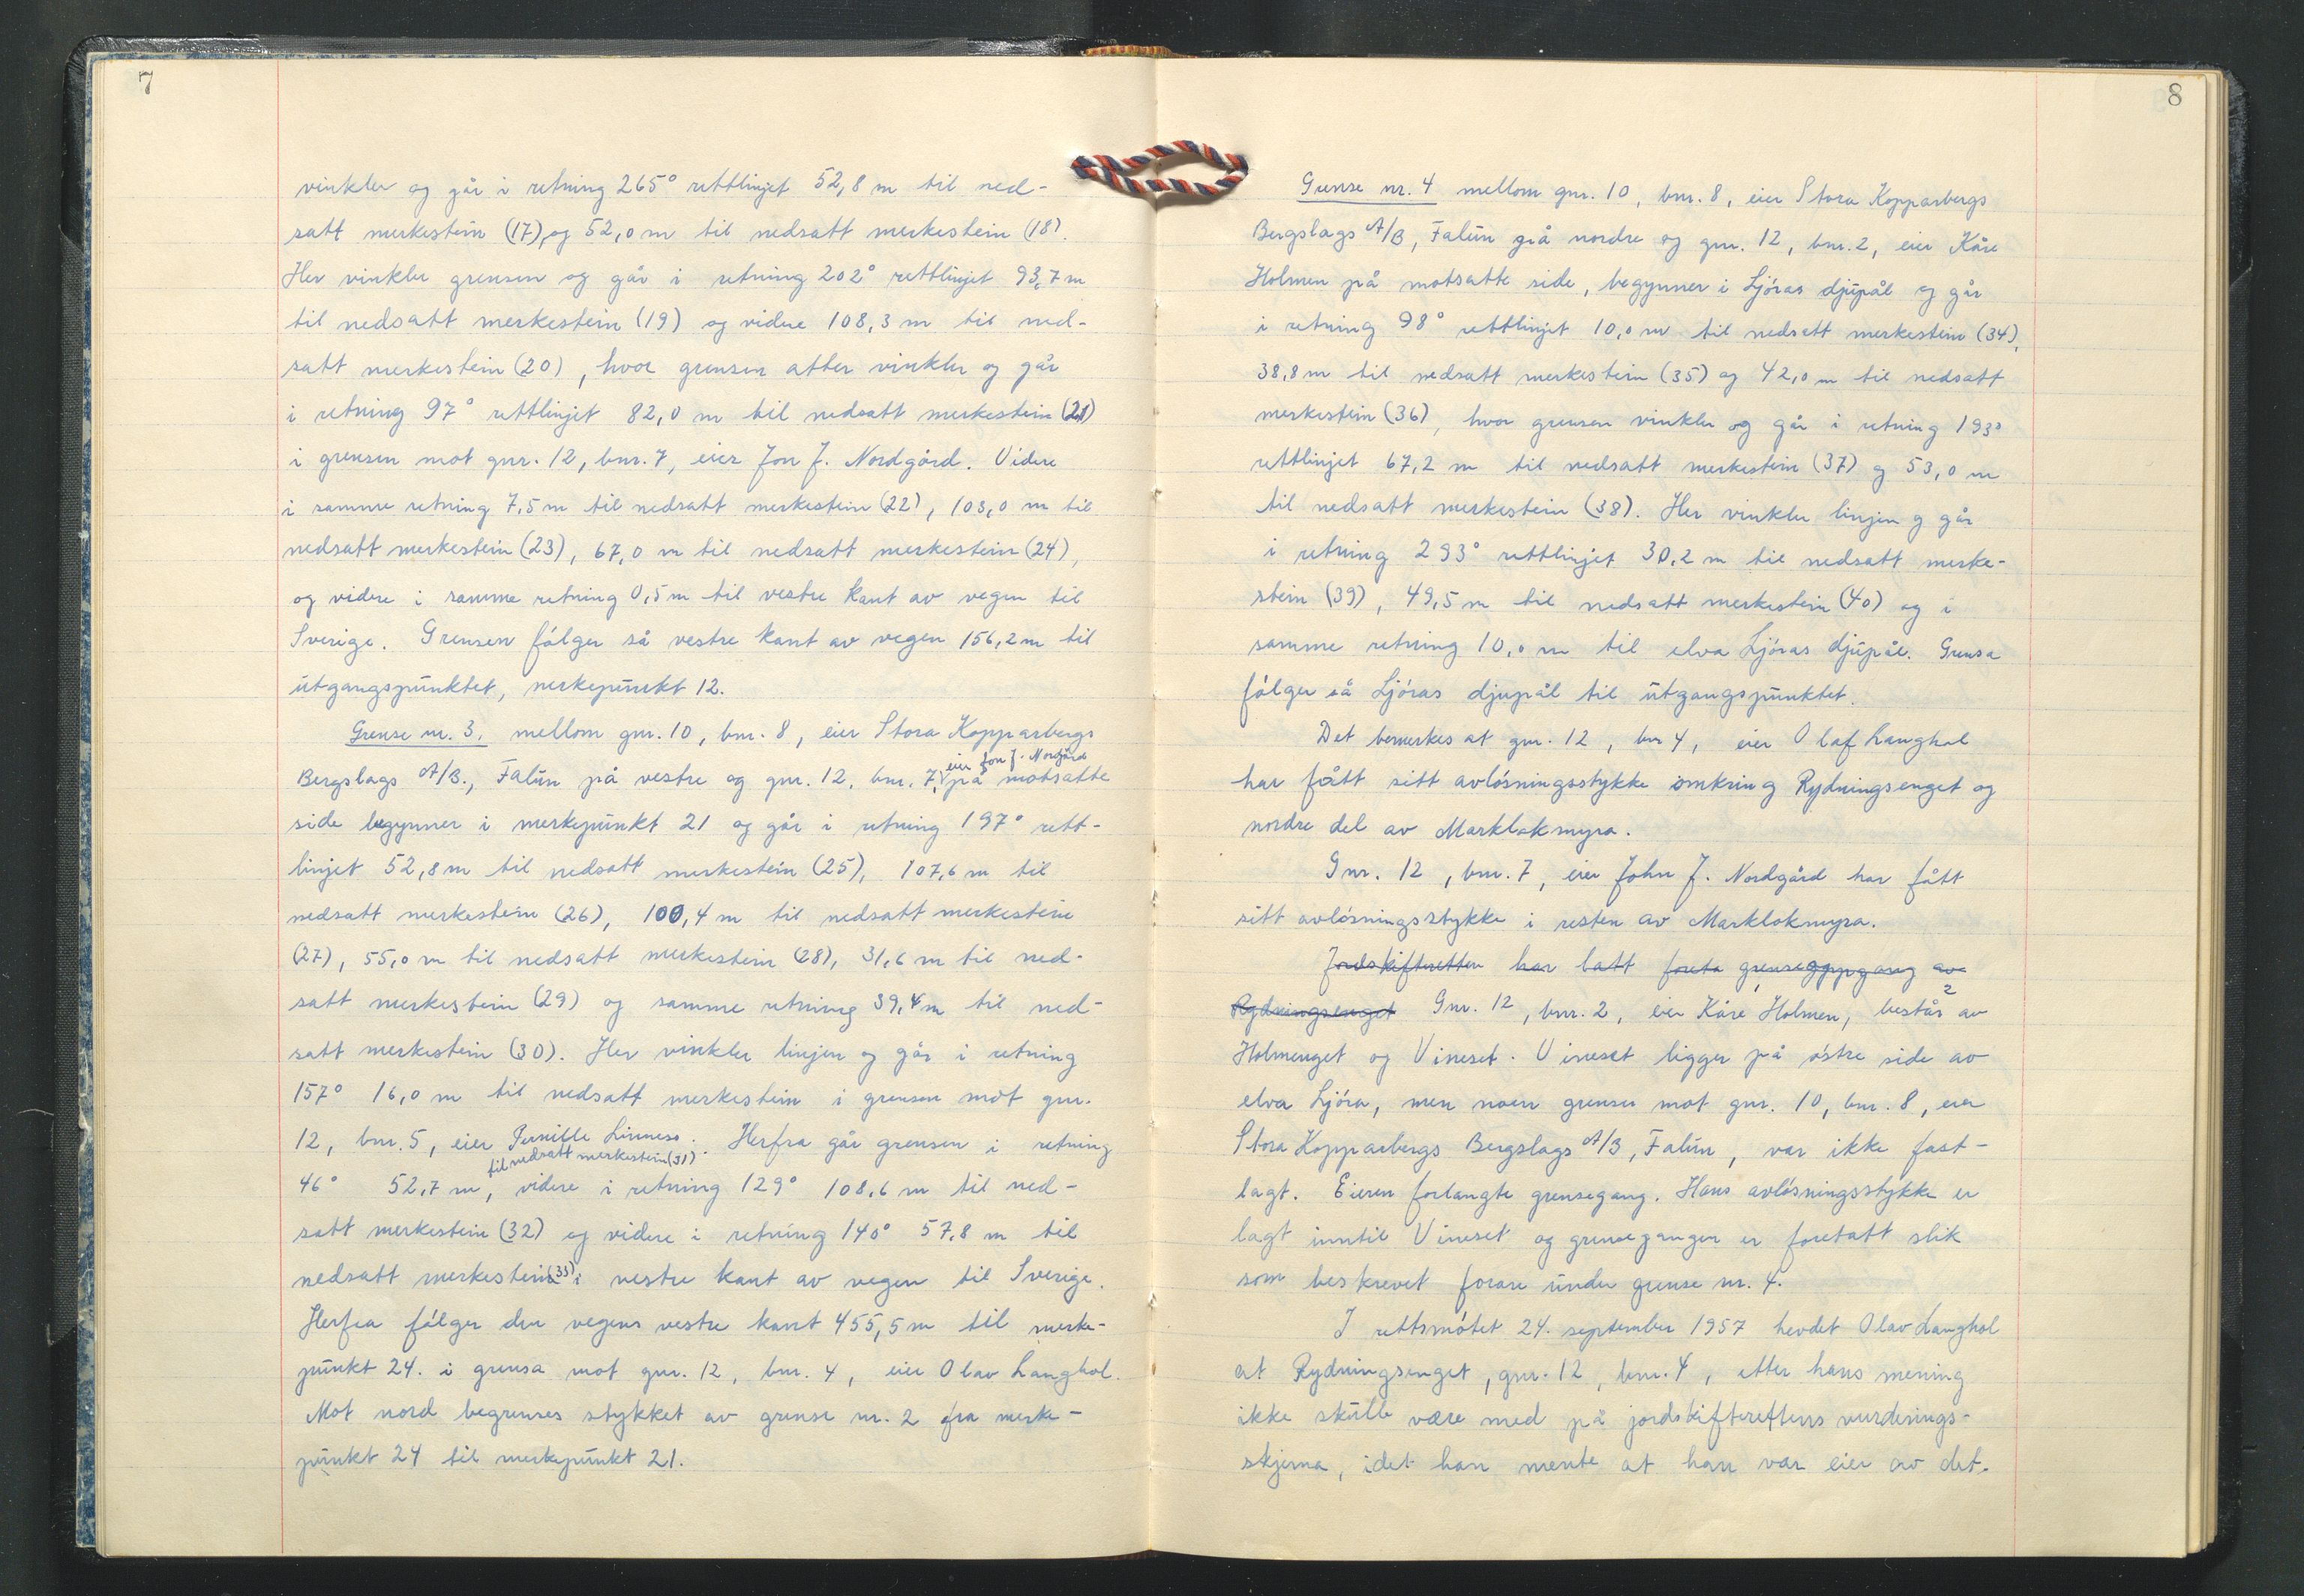 7
vinkler og går i retning 265° rettlinjet 52,8 m til ned-
satt merkestein (17), og 52,0 m til nedsatt merkestein (18).
Her vinkler grensen og går i retning 202° rettlinjet 93,7 m
til nedsatt merkestein (19) og videre 108,3 m til ned-
satt merkestein (20), hvor grensen atter vinkler og går
i retning 97° rettlinjet 82,0 m til nedsatt merkestein (21)
i grensen mot gnr. 12, bnr. 7, eier Jon J. Nordgård. Videre
i samme retning 7,5 m til nedsatt merkestein (22), 103,0 m til
nedsatt merkestein (23), 67,0 m til nedsatt merkestein (24),
og videre i samme retning 0,5 m til vestre kant av vegen til
Sverige. Grensen følger så vestre kant av vegen 156,2 m til
utgangspunktet, merkepunkt 12.
Grense nr. 3. mellom gnr. 10, bnr. 8, eier Stora Kopparbergs
eier Jon J. Nordgård
Bergslags A/B., Falun på vestre og gnr. 12, bnr. 7, på motsatte
side begynner i merkepunkt 21 og går i retning 197° rett-
linjet 52,8 m til nedsatt merkestein (25), 107,6 m til
nedsatt merkestein (26), 100,4 m til nedsatt merkestein
(27), 55,0 m til nedsatt merkestein (28), 31,6 m til ned-
satt merkestein (29) og samme retning 39,4 m til ned-
satt merkestein (30). Her vinkler linjen og går i retning
157° 16,0 m til nedsatt merkestein i grensen mot gnr.
12, bnr. 5, eier Pernille Linneso. Herfra går grensen i retning
til nedsatt merkestein (31).
46° 52,7 m, videre i retning 129° 108,6 m til ned-
satt merkestein (32) og videre i retning 140° 57,8 m til
nedsatt merkestein (33) i vestre kant av vegen til Sverige.
Herfra følger den vegens vestre kant 455,5 m til merke-
punkt 24. i grensa mot gnr. 12, bnr. 4, eier Olav Langhol.
Mot nord begrenses stykket av grense nr. 2 fra merke-
punkt 24 til merkepunkt 21.
8
Grense nr. 4 mellom gnr. 10, bnr. 8, eier Stora Kopparbergs
Bergslags A/B, Falun på nordre og gnr. 12, bnr. 2, eier Kåre
Holmen på motsatte side, begynner i Ljóras djupål og går
i retning 98° rettlinjet 10,0 m til nedsatt merkestein (34),
38,8 m til nedsatt merkestein (35) og 42,0 m til nedsatt
merkestein (36), hvor grensen vinkler og går i retning 193°
rettlinjet 67,2 m til nedsatt merkestein (37) og 53,0 m
til nedsatt merkestein (38). Her vinkler linjen og går
i retning 293° rettlinjet 30,2 m til nedsatt merke-
stein (39), 49,5 m til nedsatt merkestein (40) og i
samme retning 10,0 m til elva Ljóras djupål. Grensa
følger så Ljóras djupål til utgangspunktet.
Det bemerkes at gnr. 12, bnr 4, eier Olaf Langhol
har fått sitt avløsningsstykke omkring Rydningsenget og
nordre del av Marklokmyra.
Gnr. 12, bnr. 7, eier John J. Nordgård har fått
sitt avløsningsstykke i resten av Marklokmyra.
Jordskifteretten har latt foreta grenseoppgang av
Rydningsenget Gnr. 12, bnr. 2, eier Kåre Holmen, består av 2
Holmenget og Vineset. Vineset ligger på østre side av
elva Ljóra, men noen grenser mot gnr. 10, bnr. 8, eier
Stora Kopparbergs Bergslags A/B, Falun, var ikke fast-
lagt. Eieren forlangte grensegang. Hans avløsningsstykke er
lagt inntil Vineset og grensegangen er foretatt slik
som beskrevet foran under grense nr. 4.
I rettsmøtet 24. september 1957 hevdet Olav Langhol
at Rydningsenget, gnr. 12, bnr. 4, etter hans mening
ikke skulle være med på jordskifterettens vurderings-
skjema, idet han mente at han var eier av det.